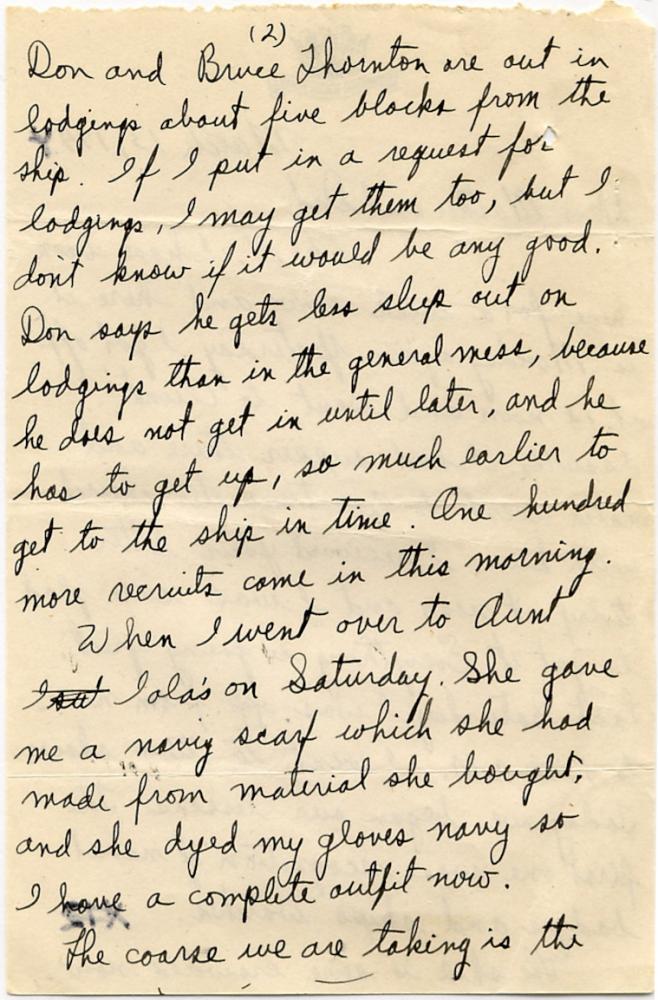 (2)
Don and Bruce Thornton are out in
lodgings about five blocks from the
ship. If I put in a request for
lodgings, I may get them too, but I
don't know if it would be any good.
Don says he gets less sleep out on
lodgings than in the general mess, because
he does not get in until later, and he
has to get up, so much earlier to
get to the ship in time. One hundred
more recruits come in this morning.
When I went over to Aunt
Iola's on Saturday. She gave
me a navy scarf which she had
made from material she bought,
and she dyed my gloves navy so
I have a complete outfit now.
The coarse we are taking is the